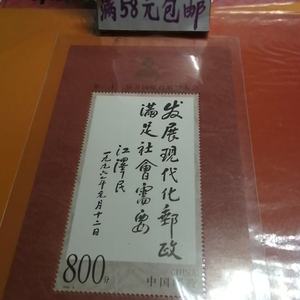 满58元包邮
发展現代化郵政
滿足社會需要
江澤民
一九九六年元月十二日
800分
中国邮政
CHINA